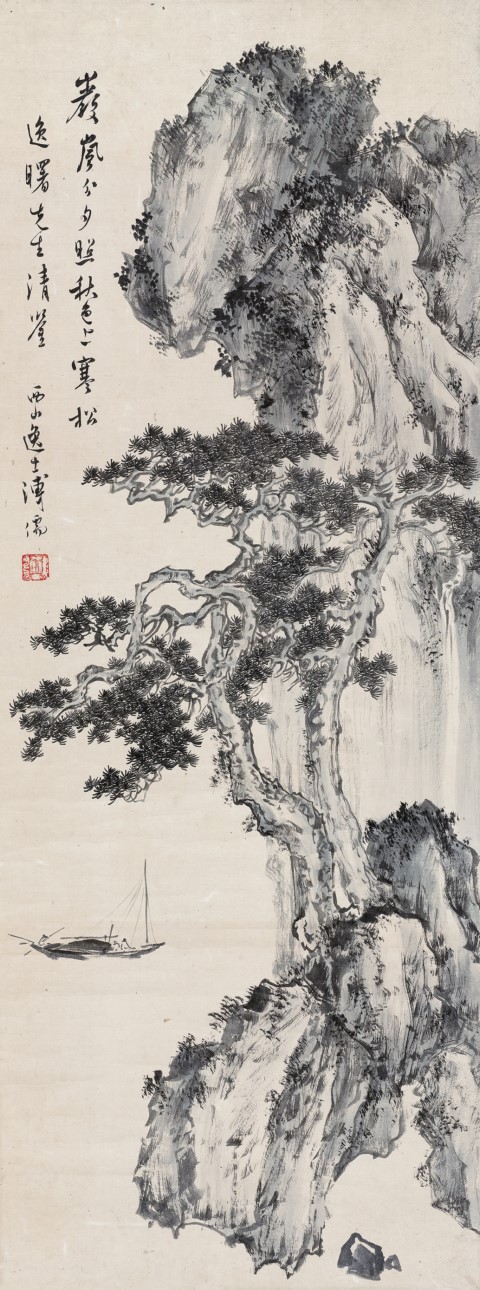 巖嵐分夕照秋色上寒松
逸曙先生清鉴
西山逸士溥儒